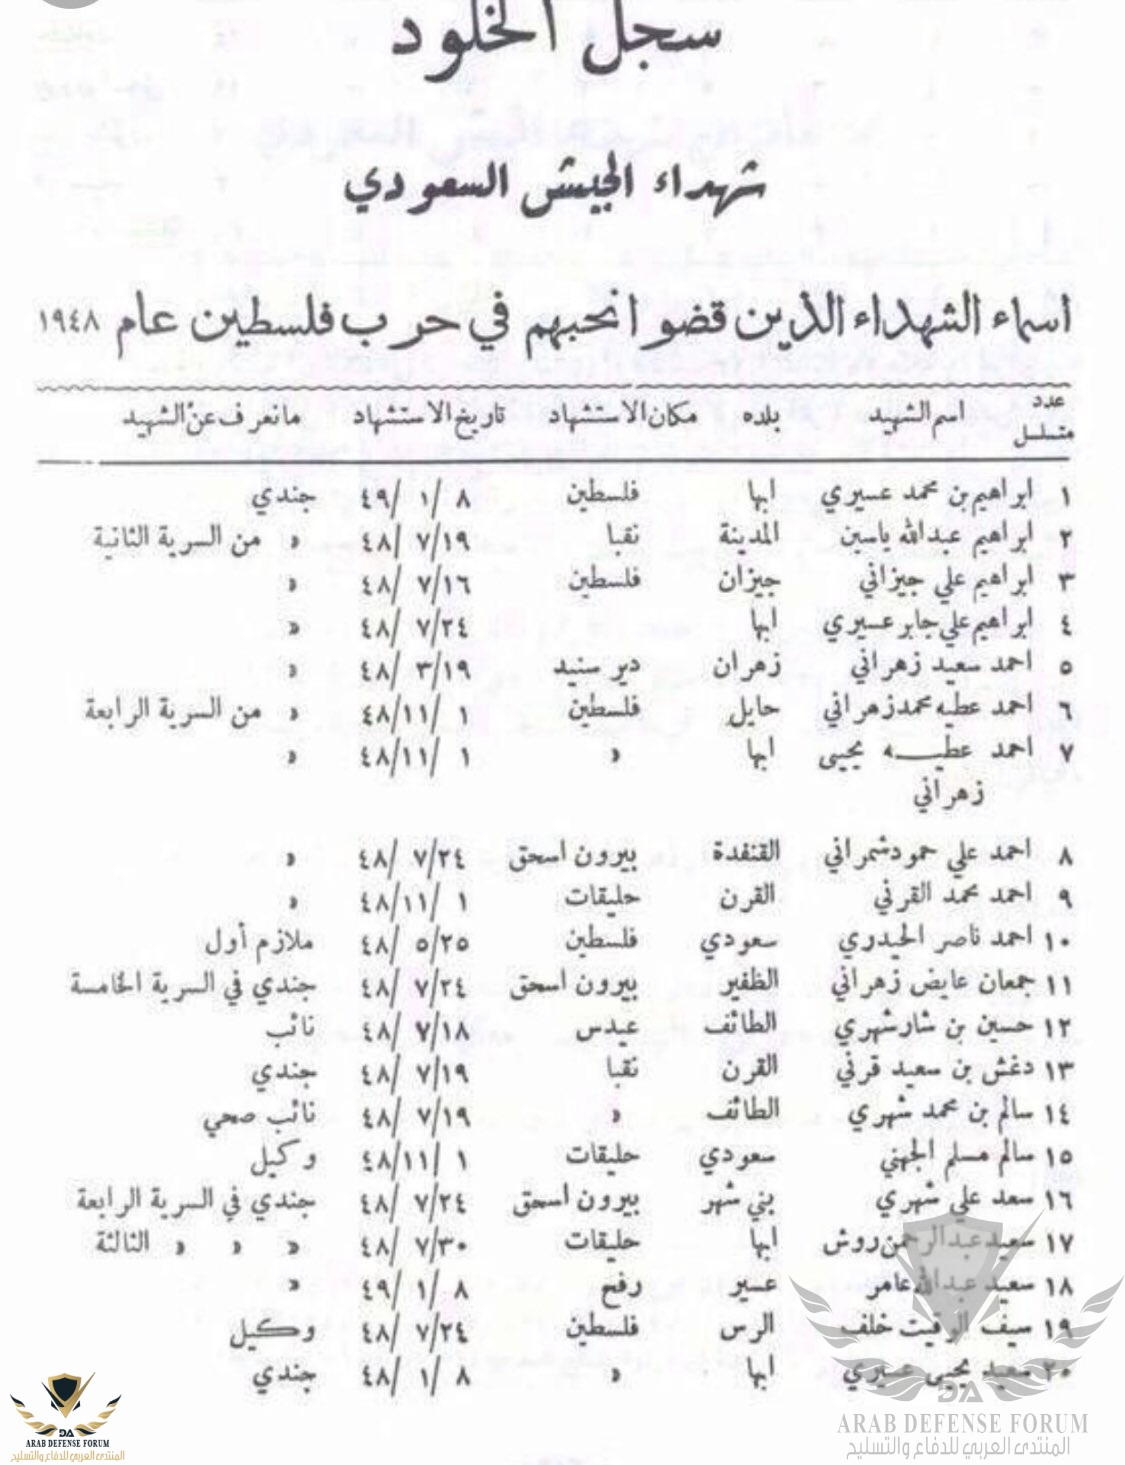 سجل الخلود
شهداء الجيش السعودي
اسماء الشهداء الذين قضوا نحبهم في حرب فلسطين عام ١٩٤٨
عدد متسلسل اسم الشهيد بلده مكان الاستشهاد تاريخ الاستشهاد مانعرف عن الشهيد
١ ابراهيم بن محمد عسيري ابها فلسطين ٨ /١ /٤٩ جندي
٢ ابراهيم عبدالله ياسين المدينة نقبا ١٩/٧ /٤٨ » من السرية الثانية
٣ ابراهيم علي جيزاني جيزان فلسطين ١٦/٧ /٤٨ »
٤ ابراهيم علي جابر عسيري ابها ٢٤/٧ /٤٨ »
٥ احمد سعيد زهراني زهران دير سنيد ١٩/٣ /٤٨ »
٦ احمد عطيه محمد زهراني حايل فلسطين ١ /١١/٤٨ » من السرية الرابعة
٧ احمد عطيـــه يحيى ابها » ١ /١١/٤٨ »
زهراني
٨ احمد علي حمود شمراني القنفدة بيرون اسحق ٢٤/٧ /٤٨ »
٩ احمد محمد القرني القرن حليقات ١ /١١/٤٨ »
١٠ احمد ناصر الحيدري سعودي فلسطين ٢٥/٥ /٤٨ ملازم أول
١١ جمعان عايض زهراني الظفير بيرون اسحق ٢٤/٧ /٤٨ جندي في السرية الخامسة
١٢ حسين بن شار شهري الطائف عيدس ١٨/٧ /٤٨ نائب
١٣ دغش بن سعيد قرني القرن نقبا ١٩/٧ /٤٨ جندي
١٤ سالم بن محمد شهري الطائف » ١٩/٧ /٤٨ نائب صحي
١٥ سالم مسلم الجهني سعودي حليقات ١ /١١/٤٨ وكيل
١٦ سعد علي شهري بني شهر بيرون اسحق ٢٤/٧ /٤٨ جندي في السرية الرابعة
١٧ سعيد عبدالرحمن روش ابها حليقات ٣٠/٧ /٤٨ » » » الثالثة
١٨ سعيد عبدالله عامر عسير رفح ٨ /١ /٤٩ »
١٩ سيف الرقيت خلف الرس فلسطين ٢٤/٧ /٤٨ وكيل
٢٠ سعيد يحيى عسيري ابها » ٨ /١ /٤٨ جندي
DA
ARAB DEFENSE FORUM
المنتدى العربي للدفاع والتسليح
DA
ARAB DEFENSE FORUM
المنتدى العربي للدفاع والتسليح